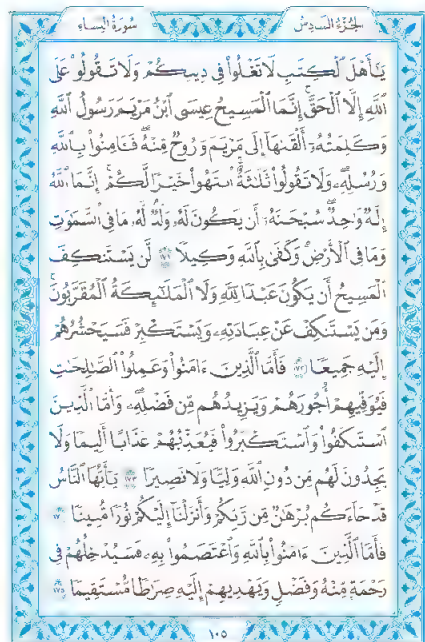 سُورَةُ النِّسَاءِ
الجُزْءُ السَّادِسُ
يَٰٓأَهْلَ ٱلْكِتَٰبِ لَا تَغْلُوا۟ فِى دِينِكُمْ وَلَا تَقُولُوا۟ عَلَى
ٱللَّهِ إِلَّا ٱلْحَقَّ ۚ إِنَّمَا ٱلْمَسِيحُ عِيسَى ٱبْنُ مَرْيَمَ رَسُولُ ٱللَّهِ
وَكَلِمَتُهُۥٓ أَلْقَىٰهَآ إِلَىٰ مَرْيَمَ وَرُوحٌ مِّنْهُ ۖ فَـَٔامِنُوا۟ بِٱللَّهِ
وَرُسُلِهِۦ ۖ وَلَا تَقُولُوا۟ ثَلَٰثَةٌ ۚ ٱنتَهُوا۟ خَيْرًا لَّكُمْ ۚ إِنَّمَا ٱللَّهُ
إِلَٰهٌ وَٰحِدٌ ۖ سُبْحَٰنَهُۥٓ أَن يَكُونَ لَهُۥ وَلَدٌ ۘ لَّهُۥ مَا فِى ٱلسَّمَٰوَٰتِ
وَمَا فِى ٱلْأَرْضِ ۗ وَكَفَىٰ بِٱللَّهِ وَكِيلًا ١٧١ لَّن يَسْتَنكِفَ
ٱلْمَسِيحُ أَن يَكُونَ عَبْدًا لِّلَّهِ وَلَا ٱلْمَلَٰٓئِكَةُ ٱلْمُقَرَّبُونَ ۚ
وَمَن يَسْتَنكِفْ عَنْ عِبَادَتِهِۦ وَيَسْتَكْبِرْ فَسَيَحْشُرُهُمْ
إِلَيْهِ جَمِيعًا ١٧٢ فَأَمَّا ٱلَّذِينَ ءَامَنُوا۟ وَعَمِلُوا۟ ٱلصَّٰلِحَٰتِ
فَيُوَفِّيهِمْ أُجُورَهُمْ وَيَزِيدُهُم مِّن فَضْلِهِۦ ۖ وَأَمَّا ٱلَّذِينَ
ٱسْتَنكَفُوا۟ وَٱسْتَكْبَرُوا۟ فَيُعَذِّبُهُمْ عَذَابًا أَلِيمًا وَلَا
يَجِدُونَ لَهُم مِّن دُونِ ٱللَّهِ وَلِيًّا وَلَا نَصِيرًا ١٧٣ يَٰٓأَيُّهَا ٱلنَّاسُ
قَدْ جَآءَكُم بُرْهَٰنٌ مِّن رَّبِّكُمْ وَأَنزَلْنَآ إِلَيْكُمْ نُورًا مُّبِينًا ١٧٤
فَأَمَّا ٱلَّذِينَ ءَامَنُوا۟ بِٱللَّهِ وَٱعْتَصَمُوا۟ بِهِۦ فَسَيُدْخِلُهُمْ فِى
رَحْمَةٍ مِّنْهُ وَفَضْلٍ وَيَهْدِيهِمْ إِلَيْهِ صِرَٰطًا مُّسْتَقِيمًا ١٧٥
١٠٥